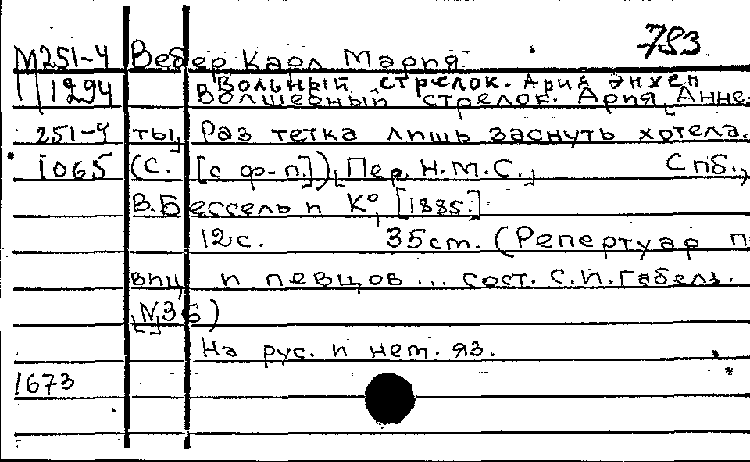 793
М251-4 Вебер Карл Мария
Вольный стрелок. Ария Энхен
1294 Волшебный стрелок. Ария Анне-
251-4 ты, Раз тетка лишь заснуть хотела.
1065 (С. [с ф-п.]) [Пер. Н.М.С.] Спб.,
В. Бессель и К°, [1885.]
12с. 35см. (Репертуар п
виц и певцов... сост. С.И. Габель.
[№36)
На рус. и нем. яз.
1673